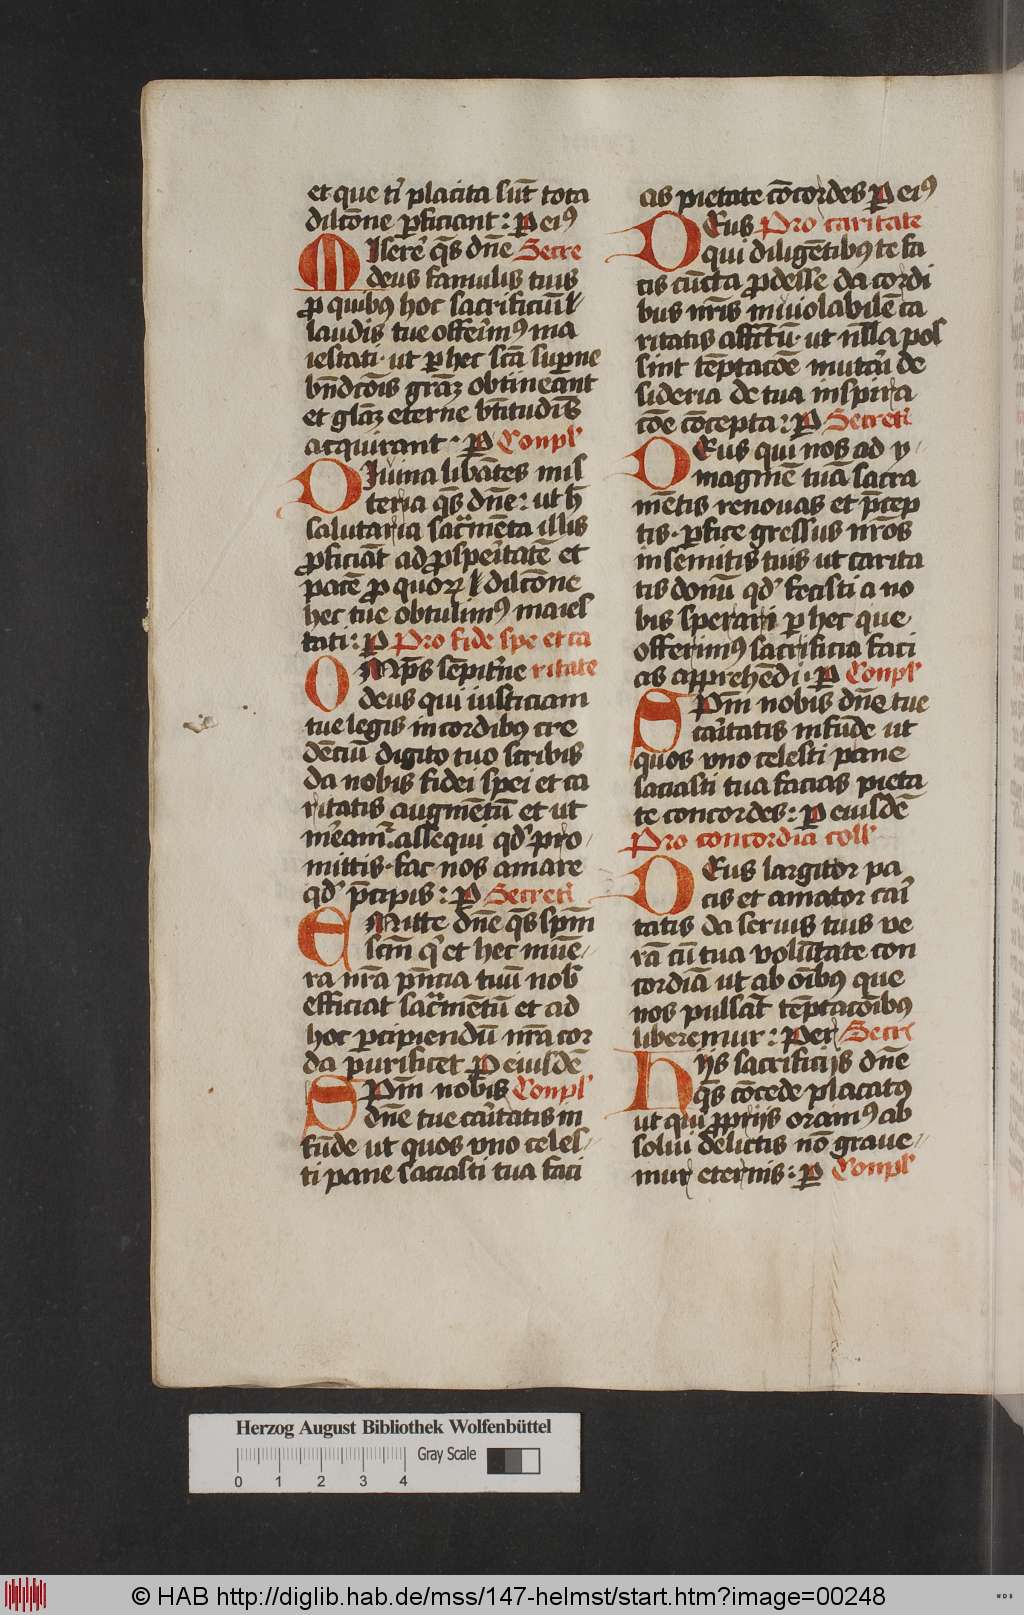 et que tᷣ placita sūt tota
dilcōne ꝑficiant: ꝑ eiꝰ
Miserē q̄s dn̄e Secre
deus famulis tuis
ꝓ quibꝰ hoc sacrificiū l
laudis tue offerimꝰ ma
iestati· ut ꝑ hec scā suꝑne
bn̄dcōis grāz obtineant
et glāz eterne bt̄itudīs
acquirant· ꝑ Conpl'
Diuina libātes mis
teria q̄s dn̄e: ut h̄
salutaria sacmēta illis
ꝓficiāt ad ꝓspeitatē et
pacē ꝓ quoꝝ l dilcōne
hec tue obtulimꝰ maies
tati: ꝑ Pro fide spe et ca
OMp̄s sēpitne ritate
deus qui iusticiam
tue legis in cordibꝰ cre
dēciū digito tuo scribis
da nobis fidei spei et ca
ritatis augmētū et ut
meamᷣ assequi qd' pro/
mittis· fac nos amare
qd' p̄cipis: ꝑ Secret
EMitte dn̄e q̄s spm̄
scm̄ qͥ et hec mūe/
ra nrā pn̄cia tuū nob̄
efficiat sacmētū et ad
hoc ꝑcipiendū nrā cor
da purificet ꝑ eiusdē
SPm̄ nobis Conpl'
dn̄e tue caitatis in
fūde ut quos vno celes/
ti pane saciasti tua faci
as pietate cōcordes ꝑ eiꝰ
DEus Pro caritate
qui diligētibꝰ te fa
cis cūcta ꝓdesse da cordi
bus nrīs inuiolabilē ca
ritatis affctū· ut nulla pos
sint tēptacōe mutari de
sideria de tua inspira
cōe cōcepta: ꝑ Secret
DEus qui nos ad y/
maginē tuā sacra
mētis renouas et p̄cep
tis· ꝑfice gressus nrōs
in semitis tuis ut carita
tis donū qd' fecisti a no
bis sperari ꝑ hec que
offerimꝰ sacrificia faci
as apprehēdi· ꝑ Conpl'
SPm̄ nobis dn̄e tue
caitatis infūde ut
quos vno celesti pane
saciasti tua facias pieta
te concordes: ꝑ eiusdē
Pro concordia coll'
DEus largitor pa
cis et amator cai
tatis da seruis tuis ve
rā cū tua volūtate con
cordiā ut ab oībus que
nos pulsāt tēptacōibꝰ
liberemur: Per Secr
Hijs sacrificijs dn̄e
q̄s cōcede placatꝰ
ut qui ꝓprijs oramꝰ ab
solui delictis nō graue/
mur eternis: ꝑ Conpl'
Herzog August Bibliothek Wolfenbüttel
Gray Scale
0 1 2 3 4
© HAB http://diglib.hab.de/mss/147-helmst/start.htm?image=00248